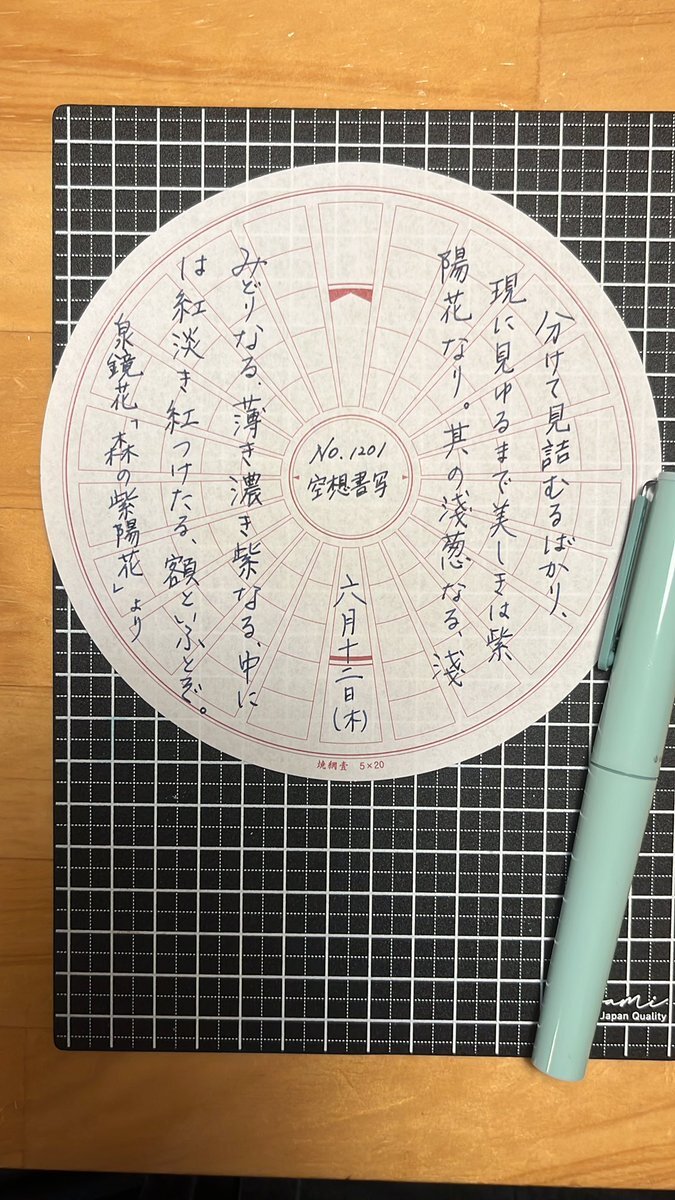 分けて見詰むるばかり、
現に見ゆるまで美しきは紫
陽花なり。其の淺葱なる、淺
みどりなる、薄き濃き紫なる、中に
は紅淡き紅つけたる、額といふとぞ。
泉鏡花「森の紫陽花」より
No.1201
空想書写
六月十二日(木)
焼稠壹 5×20
ami
Japan Quality